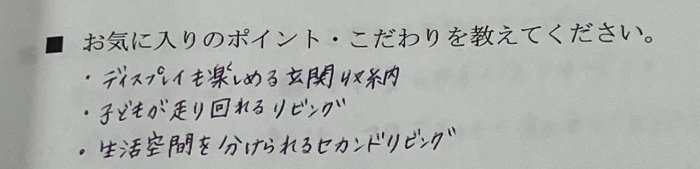 ■ お気に入りのポイント・こだわりを教えてください。
・ディスプレイも楽しめる玄関収納
・子どもが走り回れるリビング
・生活空間を分けられるセカンドリビング